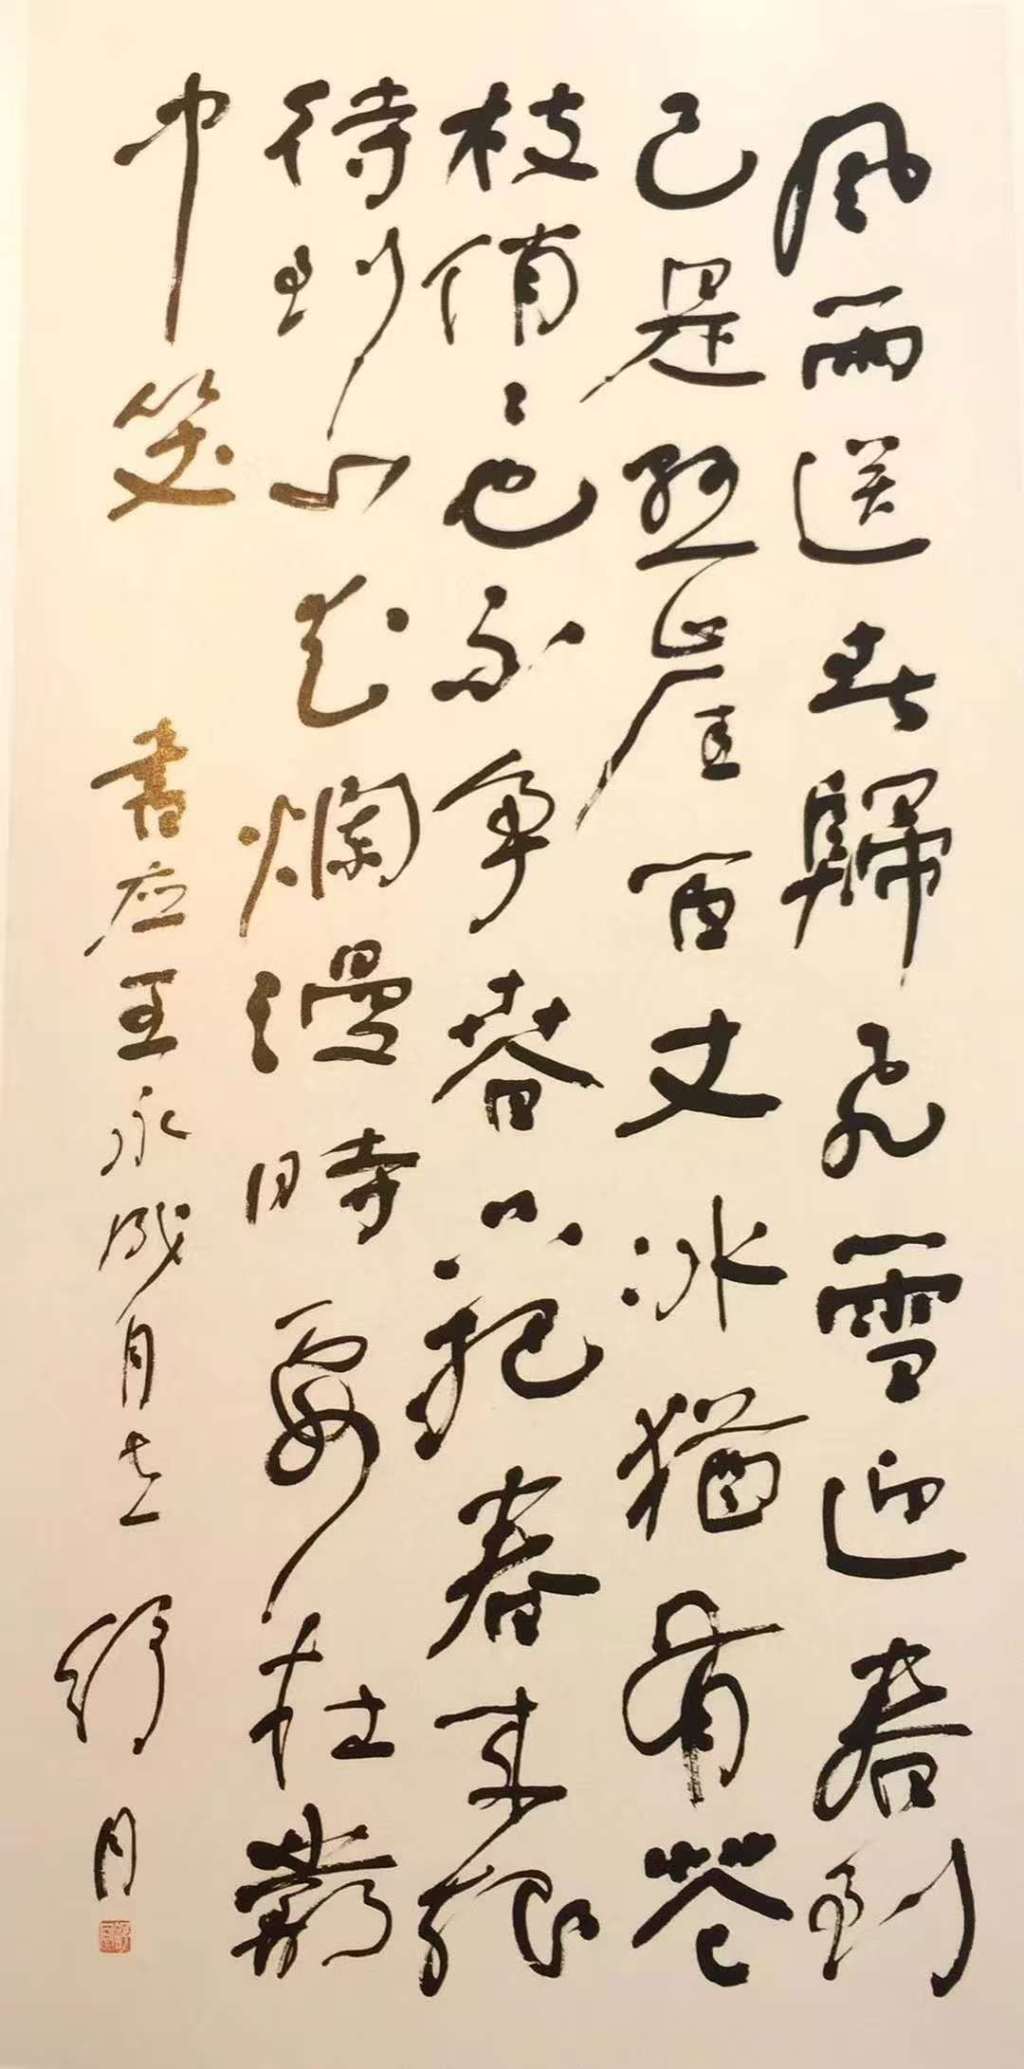 風雨送春歸飛雪迎春到
已是懸崖百丈冰猶有花
枝俏〻也不爭春只把春來報
待到山花爛漫時要在叢
中笑 書應王永成同志 舒同